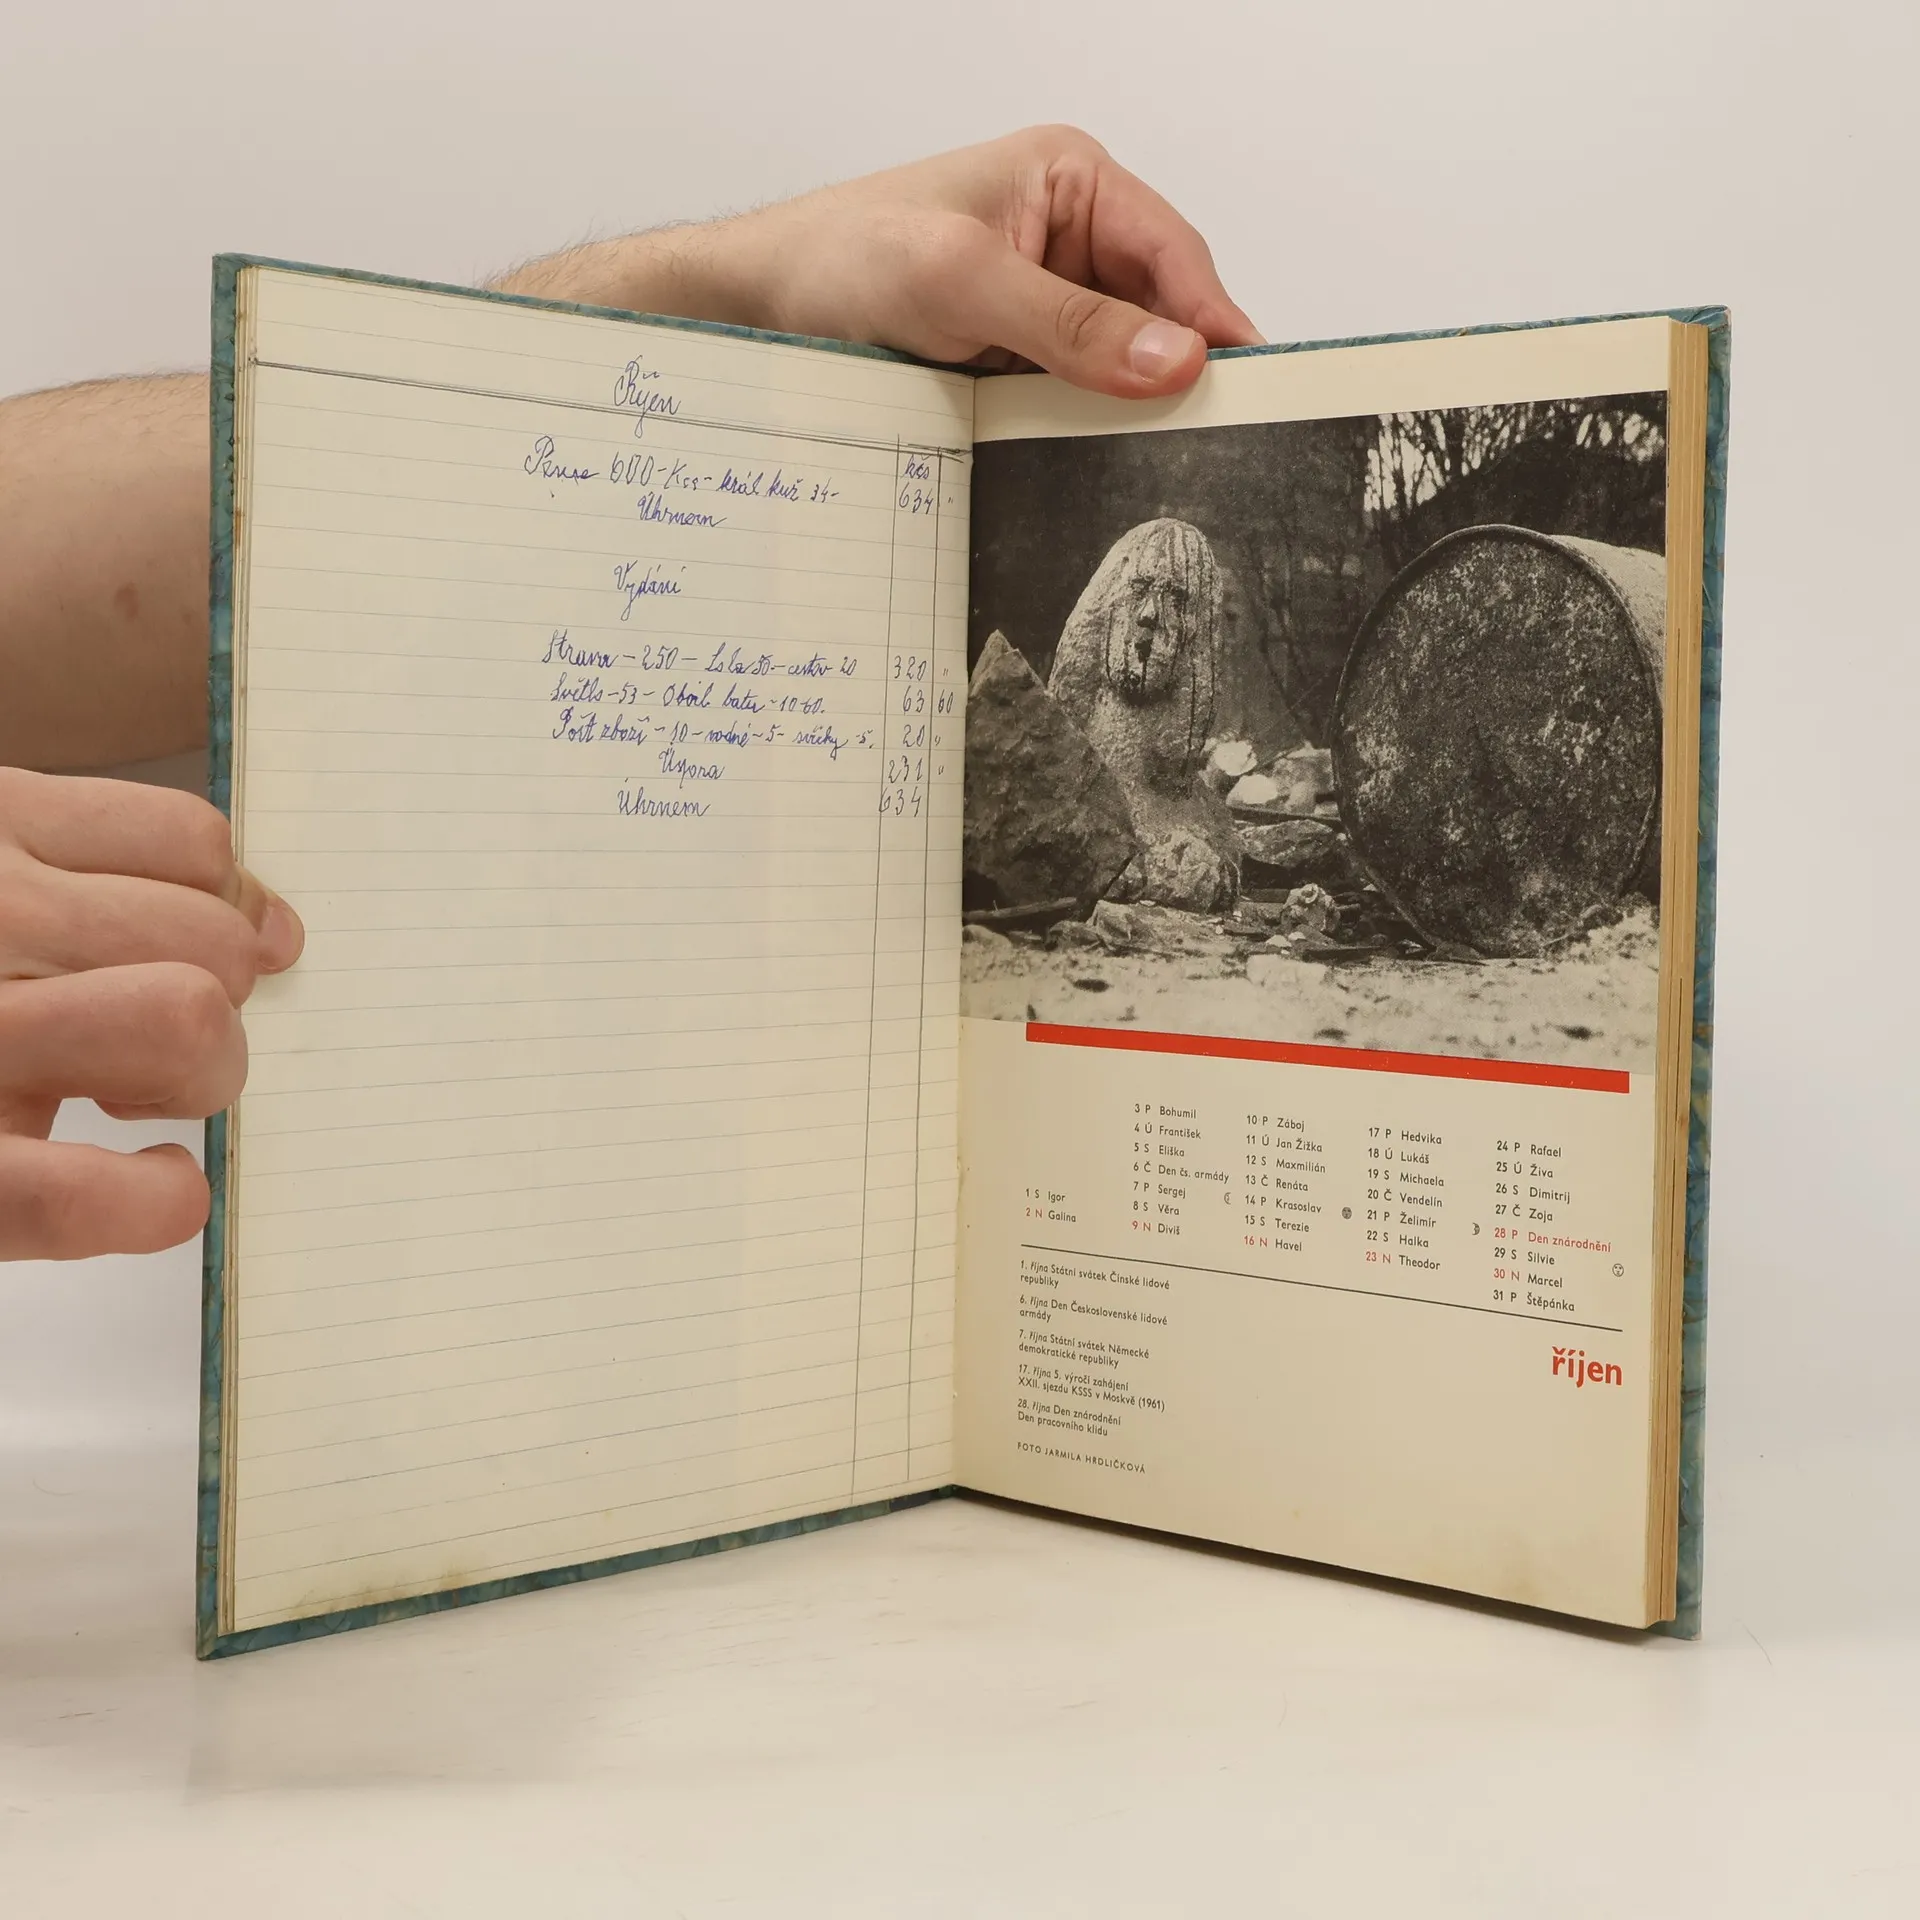 Říjen
kčs
600 - Kčs - král kuž 34 -
634 "
Úhrnem
Vydání
Strava - 250 - 50 - 20 320 "
Světlo - 53 - - 10-60. 63 60
zboží - 10 - vodné - 5 - svíčky - 5. 20 "
Úspora 231 "
Úhrnem 634
1 S Igor
2 N Galina
3 P Bohumil
4 Ú František
5 S Eliška
6 Č Den čs. armády
7 P Sergej
8 S Věra
9 N Diviš
10 P Záboj
11 Ú Jan Žižka
12 S Maxmilián
13 Č Renáta
14 P Krasoslav
15 S Terezie
16 N Havel
17 P Hedvika
18 Ú Lukáš
19 S Michaela
20 Č Vendelín
21 P Želimír
22 S Halka
23 N Theodor
24 P Rafael
25 Ú Živa
26 S Dimitrij
27 Č Zoja
28 P Den znárodnění
29 S Silvie
30 N Marcel
31 P Štěpánka
1. října Státní svátek Čínské lidové
republiky
6. října Den Československé lidové
armády
7. října Státní svátek Německé
demokratické republiky
17. října 5. výročí zahájení
XXII. sjezdu KSSS v Moskvě (1961)
28. října Den znárodnění
Den pracovního klidu
FOTO JARMILA HRDLIČKOVÁ
říjen